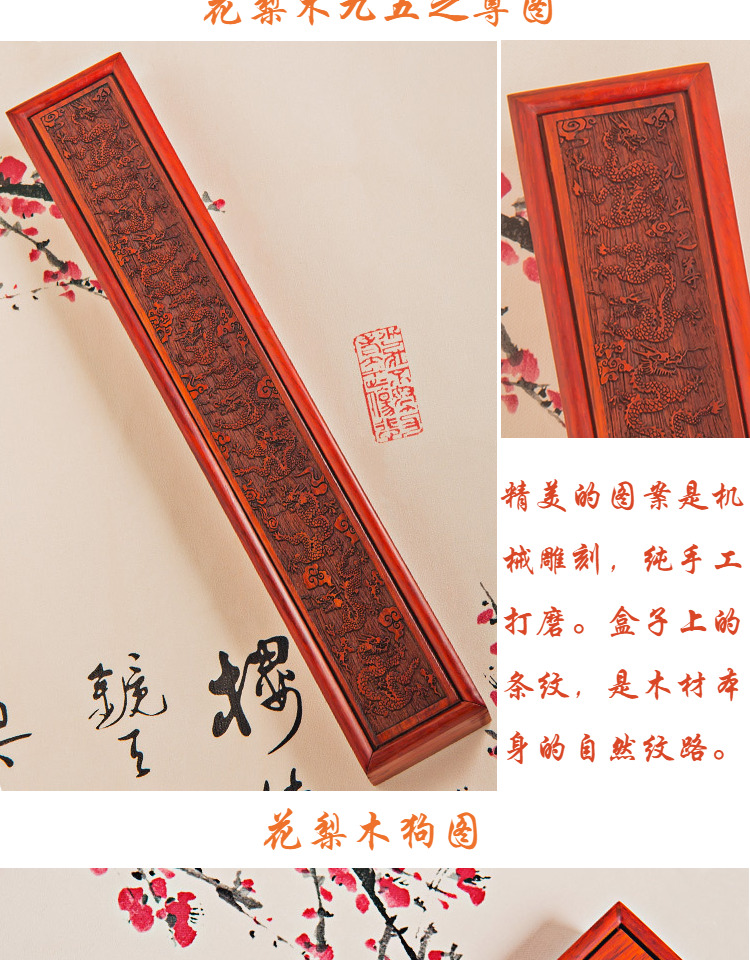 花梨木九五之尊图
九五之尊
精美的图案是机
械雕刻，纯手工
打磨。盒子上的
条纹，是木材本
身的自然纹路。
镜天
楼
花梨木狗图